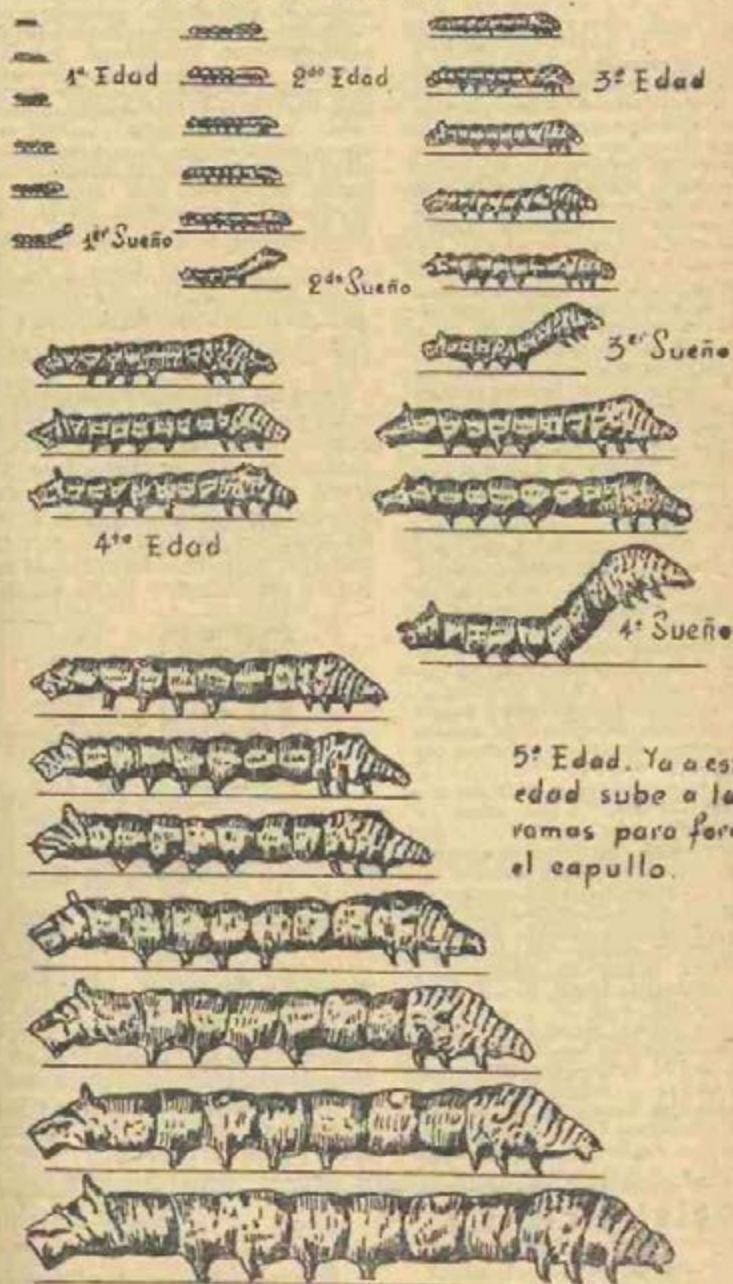 1ª Edad
2da Edad
3ª Edad
1er Sueño
2do Sueño
3er Sueño
4ta Edad
4º Sueño
5ª Edad. Ya a es
edad sube a la
ramas para for
el capullo.